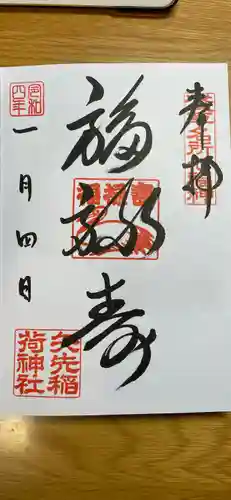 奉拝
福禄寿
令和
四年
一月四日
矢先稲
荷神社